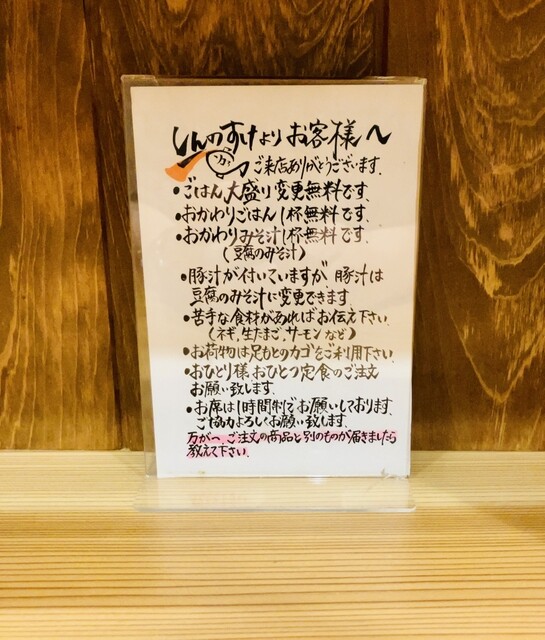 しんのすけより お客様へ
ご来店ありがとうございます。
・ごはん大盛り変更無料です。
・おかわりごはん1杯無料です。
・おかわりみそ汁1杯無料です。
(豆腐のみそ汁)
・豚汁が付いていますが、豚汁は
豆腐のみそ汁に変更できます。
・苦手な食材があればお伝え下さい。
(ネギ、生たまご、サーモンなど)
・お荷物は足もとのカゴをご利用下さい。
・おひとり様おひとつ定食のご注文
お願い致します。
・お席は1時間制でお願いしております。
ご協力よろしくお願い致します。
万が一、ご注文の商品と別のものが届きましたら
教えて下さい。